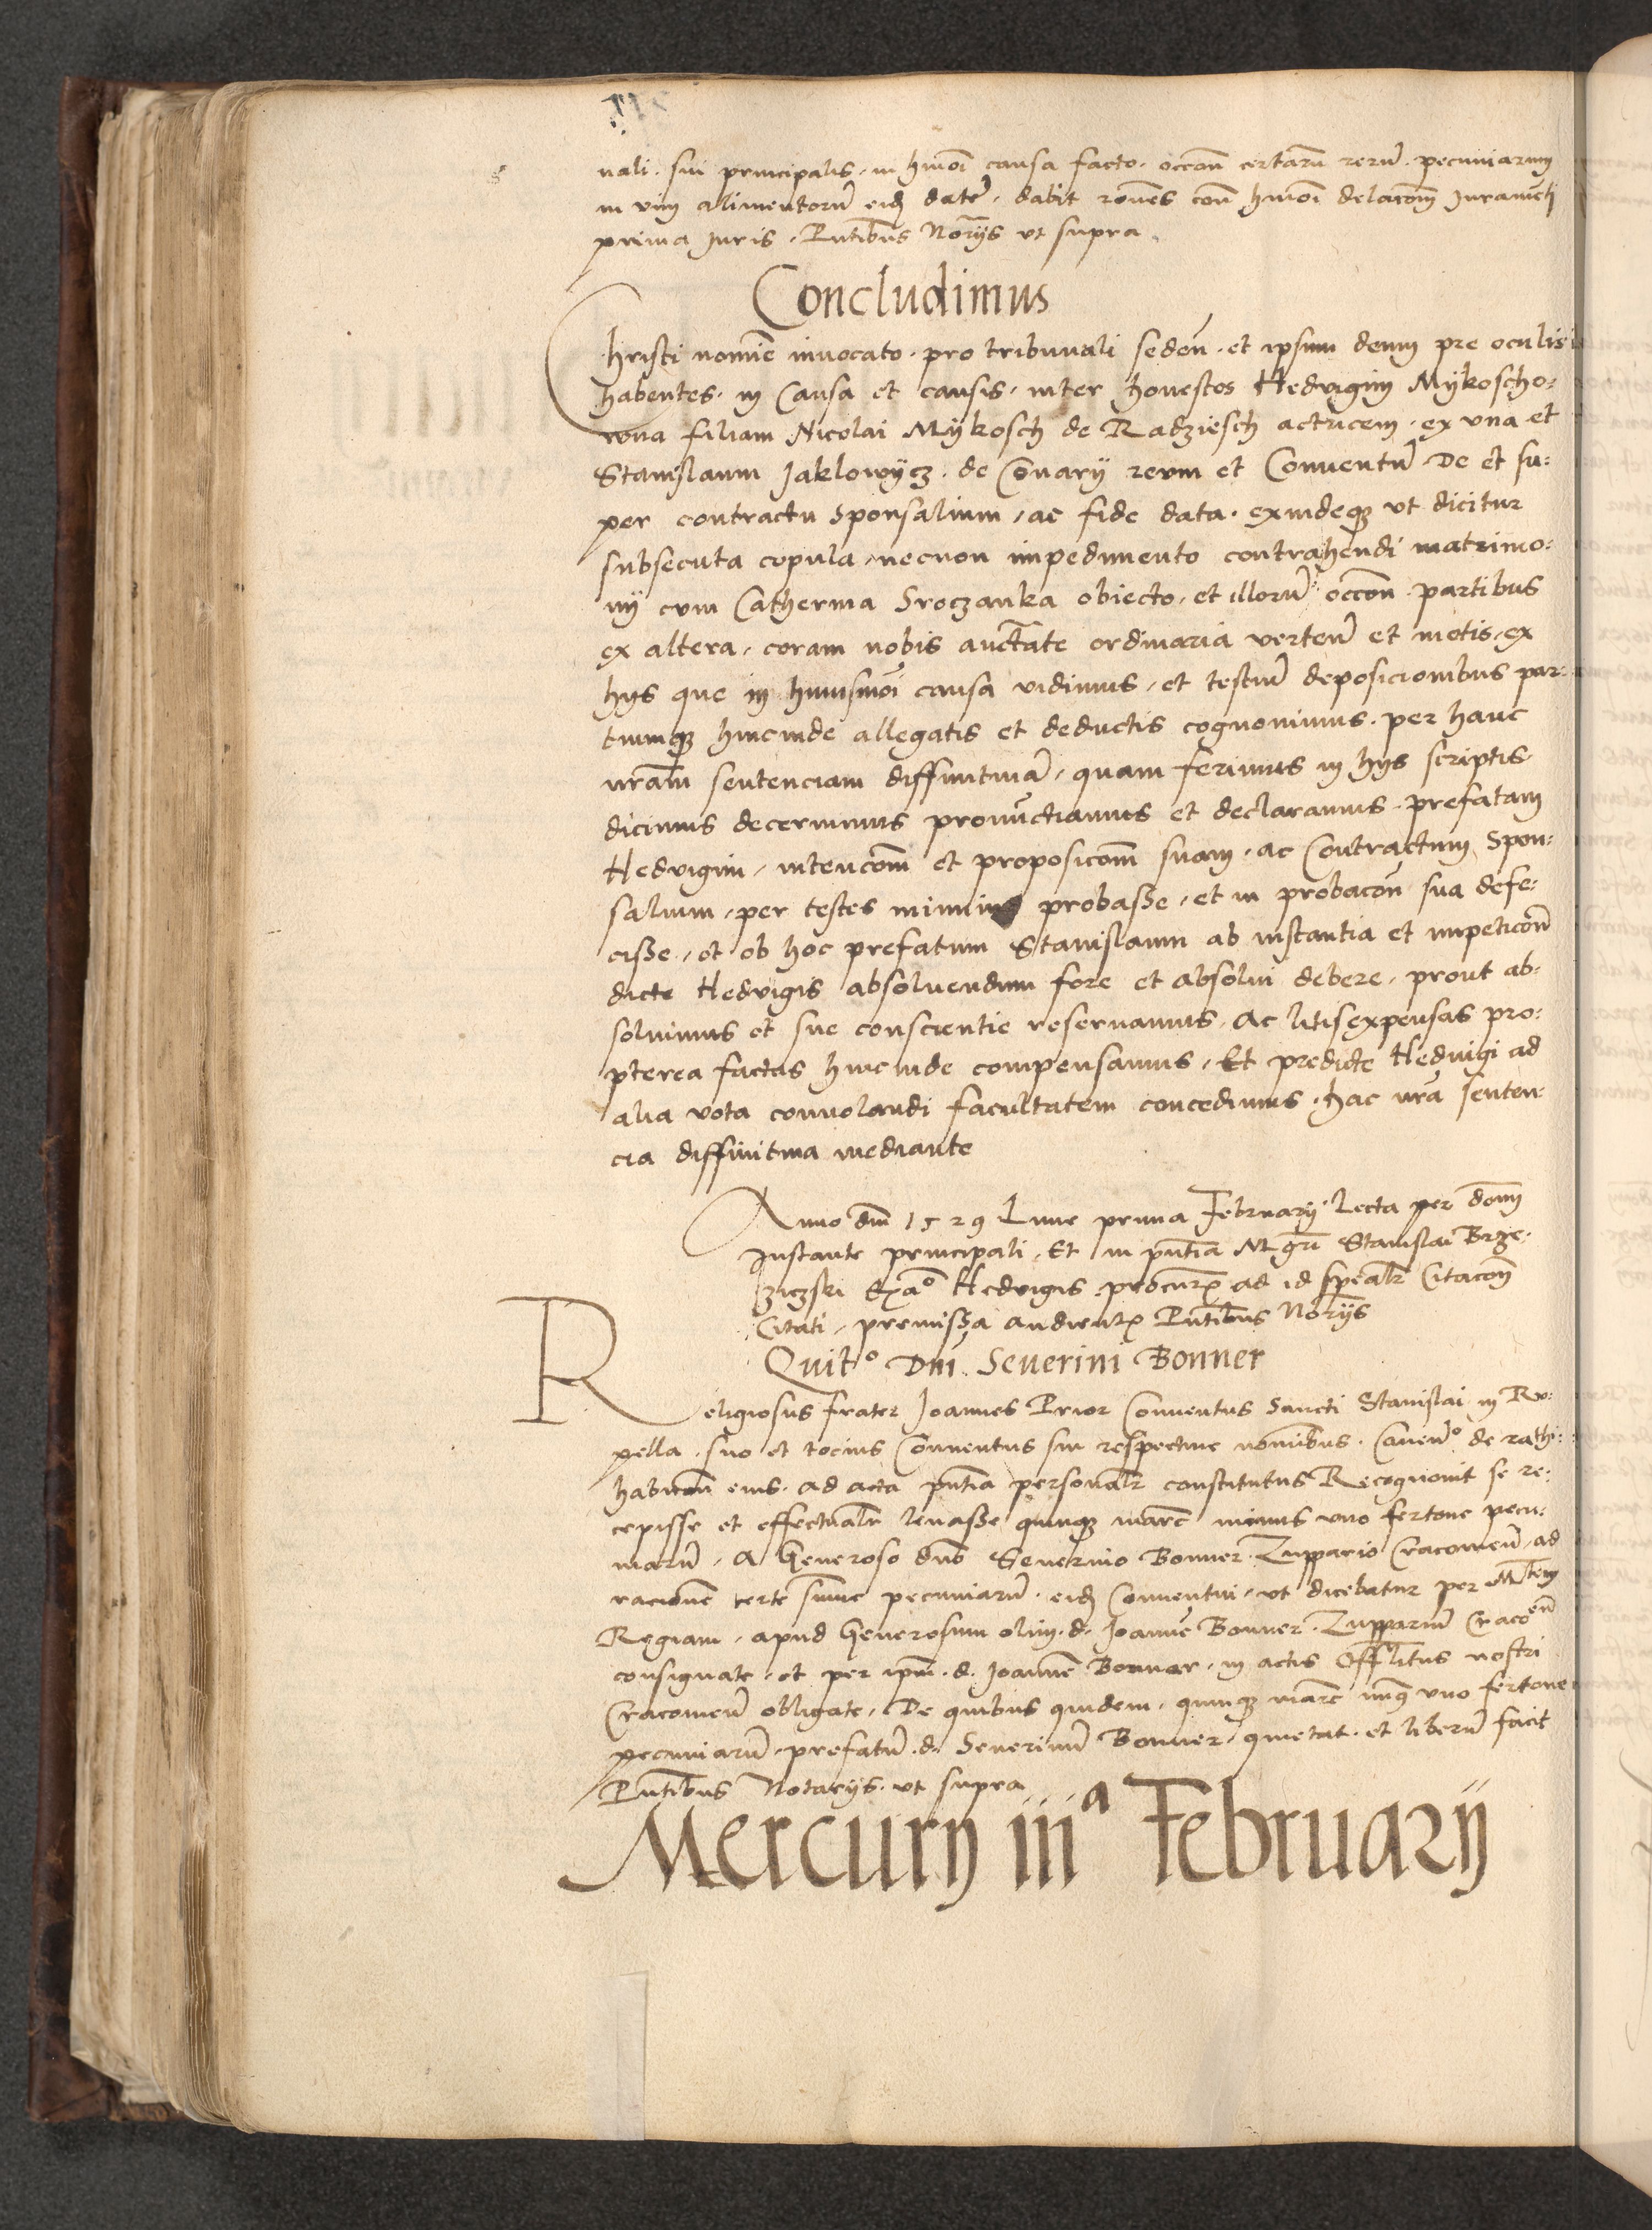 nali sui principalis in hmoi causa facto occon certaru reru pecuniarum
in vim alimentoru eid date dabit rones con hmoi delacom Juramenti
prima Juris Pntibus Norijs vt supra
Concludimus
Christi nomine inuocato pro tribunali seden et ipsum deum pre oculis
habentes in Causa et causis inter honestos Hedvigim Mykoscho:
wna filiam Nicolai Mykosch de Radziesch actricem ex vna et
Stanislaum Jaklowycz de Conary reum et Conuentu De et su:
per contractu Sponsalium ac fide data exindeq vt dicitur
subsecuta copula necnon impedimento contrahendi matrimo:
nij cum Catherina Sroczanka obiecto et illoru occon partibus
ex altera coram nobis auctate ordinaria verten et motis ex
hijs que in huiusmoi causa vidimus et testiu deposicionibus par:
tiumq hincinde allegatis et deductis cognouimus per hanc
nram sentenciam diffinitiua quam ferimus in hijs scriptis
dicimus decernimus pronuctiamus et declaramus prefatam
Hedvigim intencom et proposicom suam ac Contractum Spon:
salium per testes minime probasse et in probacon sua defe:
cisse et ob hoc prefatum Stanislaum ab instantia et impeticon
dicte Hedvigis absoluendum fore et absolui debere prout ab:
soluimus et sue conscientie reseruamus Ac litisexpensas pro:
pterea factas hincinde compensamus Et predicte Heduigi ad
alia vota conuolandi facultatem concedimus hac nra senten:
cia diffinitiua mediante
Anno dni 1529 Lune prima February Lecta per domi
Instante principali Et in pntia Mgri Stanislai Brze:
ziczski Exa° Hedvigis procur ad id spealr Citacon
Citati premissa audient Pntibus Norijs
Quit° Dni Seuerini Bonner
Religiosus frater Joannes Prior Conuentus Sancti Stanislai in Ru:
pella suo et tocius Conuentus sui respectiue nominibus Cauen° de rathi:
habicon eius ad acta pntia personalr constitutus Recognouit se re:
cepisse et effectualr leuasse quinq marc minus vno fertone pecu:
niaru A Generoso dno Seuerino Bonner Zuppario Cracouien ad
racione certe sume pecuniaru eid Conuentui vt dicebatur per Mtem
Regiam apud Generosum olim d. Joanne Bonner Zuppariu Cracoen
consignate et per ipm d. Joanne Bonnar in actis Offlitus nostri
Cracouien obligate De quibus quidem quinq marc minq vno fertone
pecuniaru prefatu d. Seuerinu Bonner quietat et liberu facit
Pntibus Notarijs vt supra
Mercurij iiiª Februarij